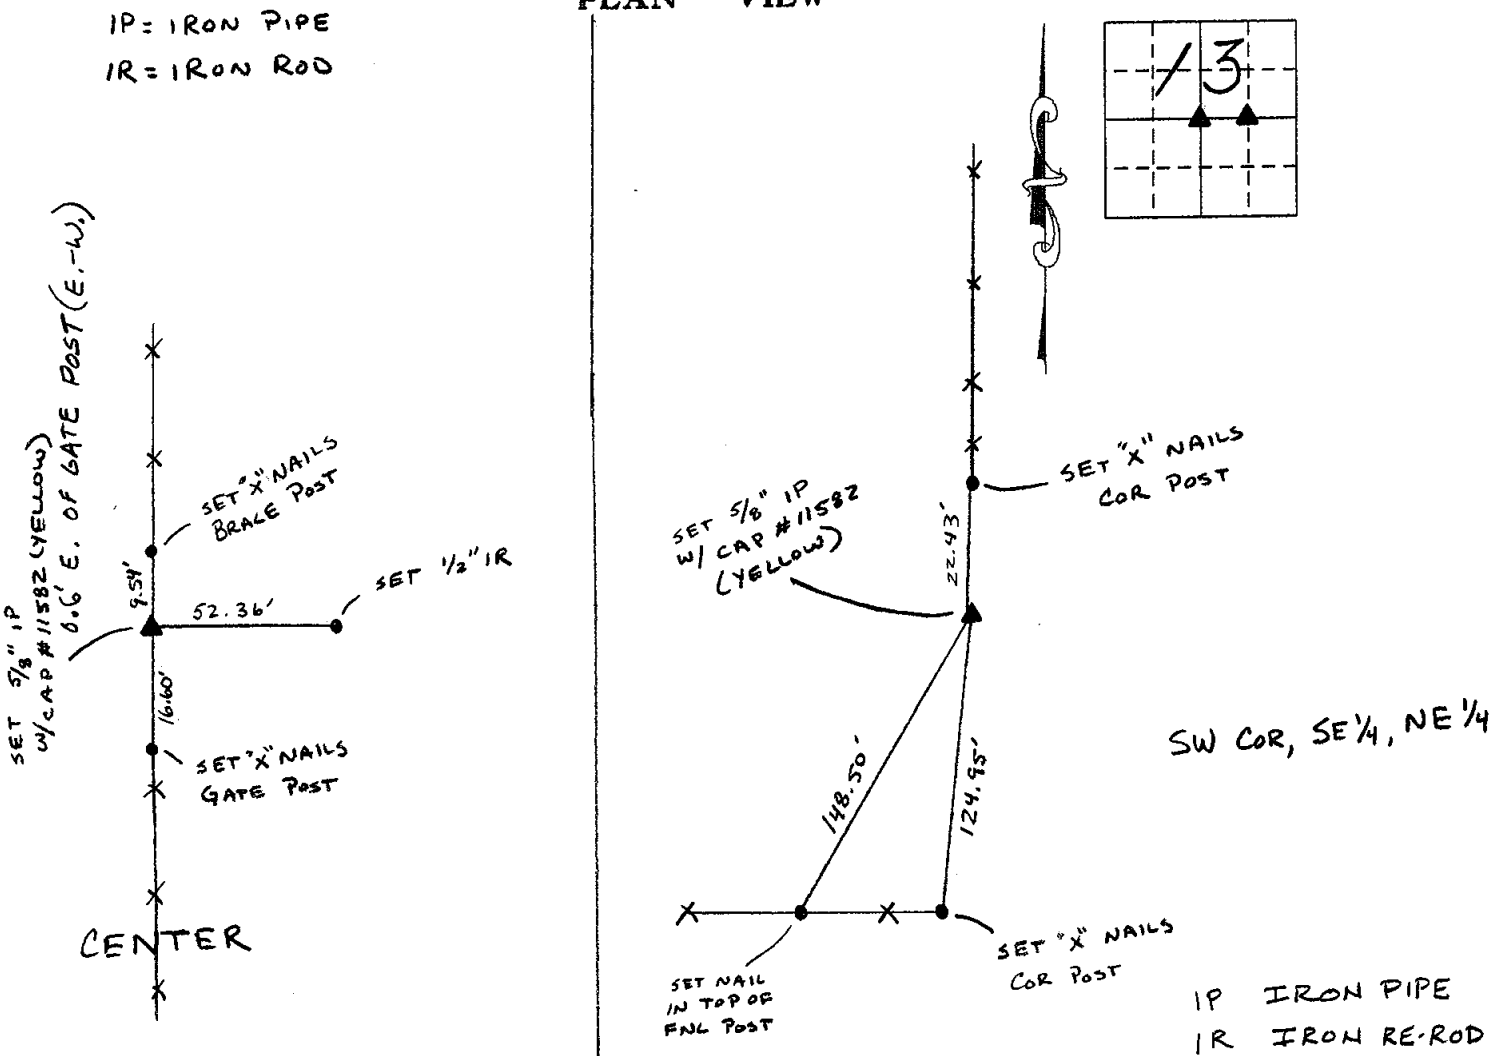 PLAN VIEW
IP = IRON PIPE
IR = IRON ROD
SET 5/8" IP
W/CAP #11582 (YELLOW)
0.6' E. OF GATE POST (E.-W.)
SET "X" NAILS
BRACE POST
9.54'
52.36'
SET 1/2" IR
16.60'
SET "X" NAILS
GATE POST
CENTER
13
SET "X" NAILS
COR POST
SET 5/8" IP
W/ CAP #11582
(YELLOW)
22.43'
148.50'
124.95'
SW COR, SE 1/4, NE 1/4
SET NAIL
IN TOP OF
FNL POST
SET "X" NAILS
COR POST
IP IRON PIPE
IR IRON RE-ROD